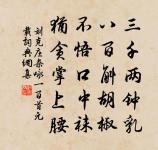 三千两钟乳
八百斛胡椒
不悟口中袜
犹贪掌上腰
刘克庄杂咏一百首元
载词典网集